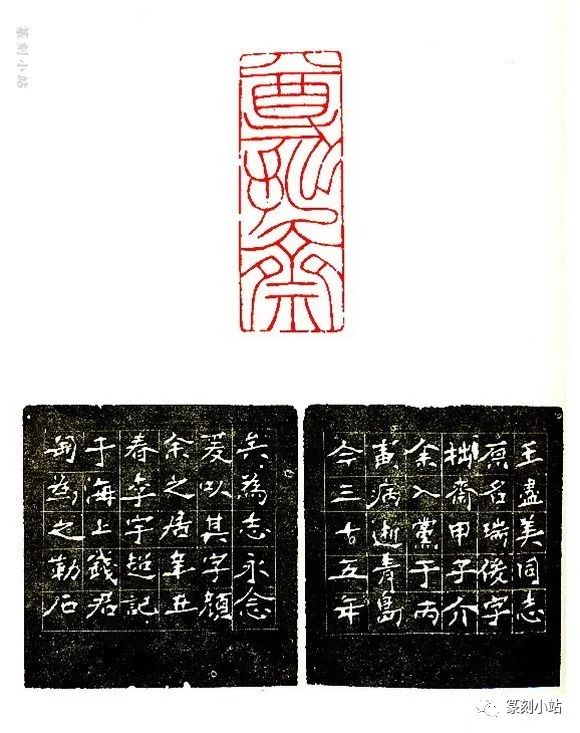 篆刻小站
尊拙齋
王盡美同志
原名瑞俊字
拙齋甲子介
余入黨于丙
寅病逝青島
今三十五年
矣為志永念
爰以其字顏
余之居辛丑
春李宇超記
于海上錢君
匋為之勒石
篆刻小站